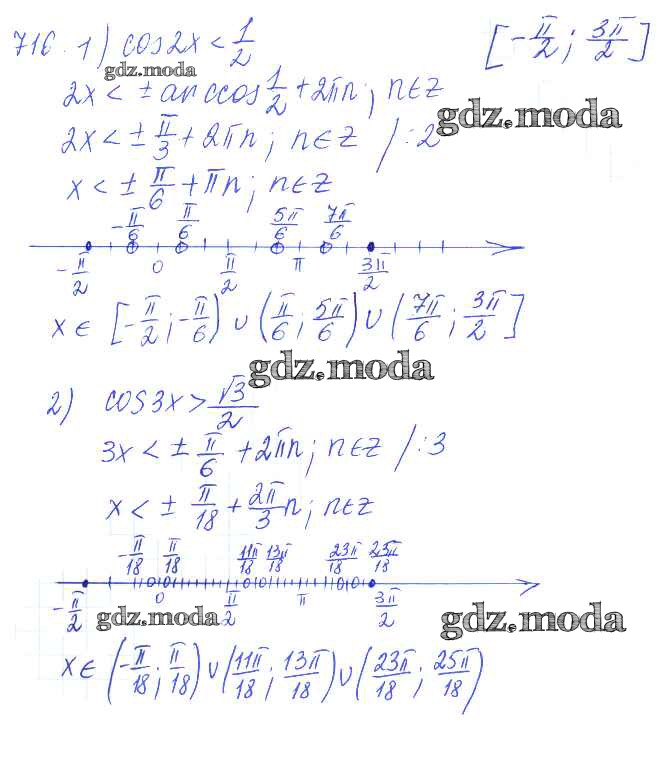 716. 1) cos2x < 1/2 [-π/2; 3π/2]
gdz.moda
2x < ± arccos 1/2 + 2πn; n∈Z
gdz.moda
2x < ± π/3 + 2πn; n∈Z /:2
x < ± π/6 + πn; n∈Z
-π/6 π/6 5π/6 7π/6
-π/2 0 π/2 π 3π/2
x ∈ [-π/2; -π/6) ∪ (π/6; 5π/6) ∪ (7π/6; 3π/2]
gdz.moda
2) cos3x > √3/2
3x < ± π/6 + 2πn; n∈Z /:3
x < ± π/18 + 2π/3 n; n∈Z
-π/18 π/18 11π/18 13π/18 23π/18 25π/18
-π/2 0 π/2 π 3π/2
gdz.moda gdz.moda
x ∈ (-π/18; π/18) ∪ (11π/18; 13π/18) ∪ (23π/18; 25π/18)